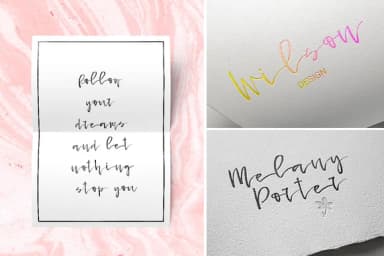 follow
your
dreams
and let
nothing
stop you
Wilson
DESIGN
Melany
Porter